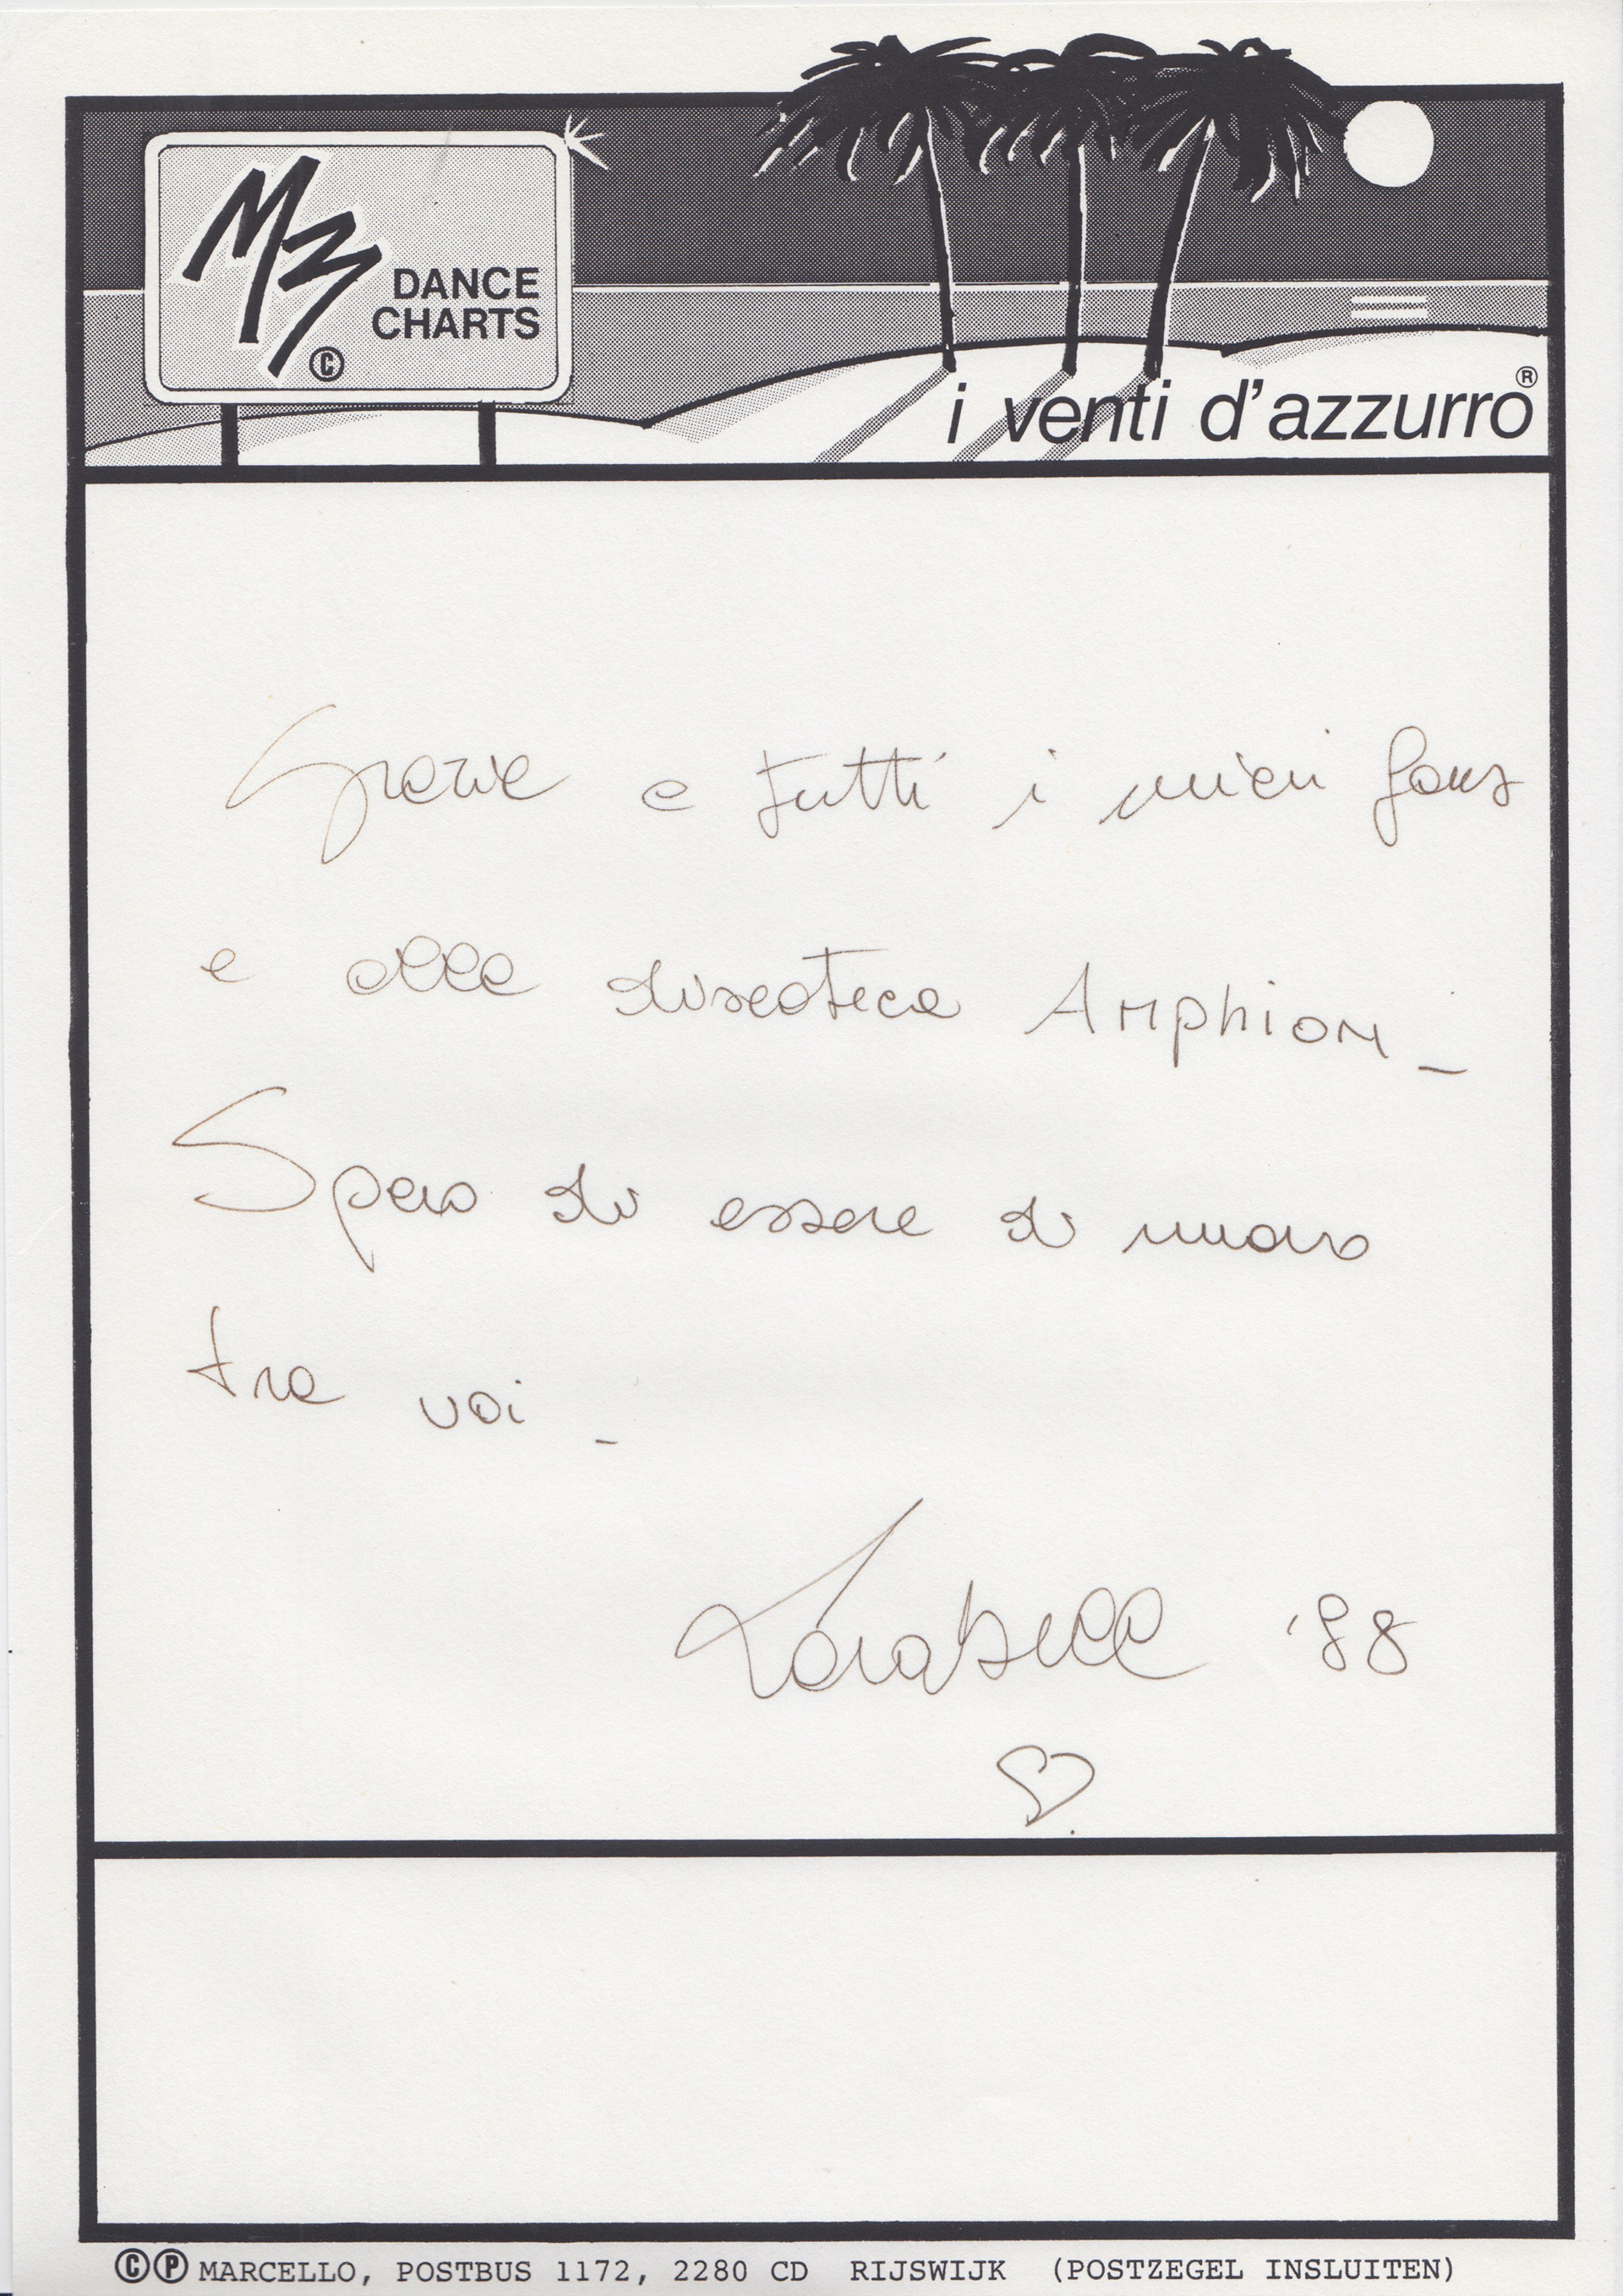 MZ
DANCE
CHARTS
©
i venti d'azzurro®
Grazie a tutti i miei fans
e alla discoteca Amphion_
Spero di essere di nuovo
tra voi_
Tarabell '88
♡
©Ⓟ MARCELLO, POSTBUS 1172, 2280 CD RIJSWIJK (POSTZEGEL INSLUITEN)